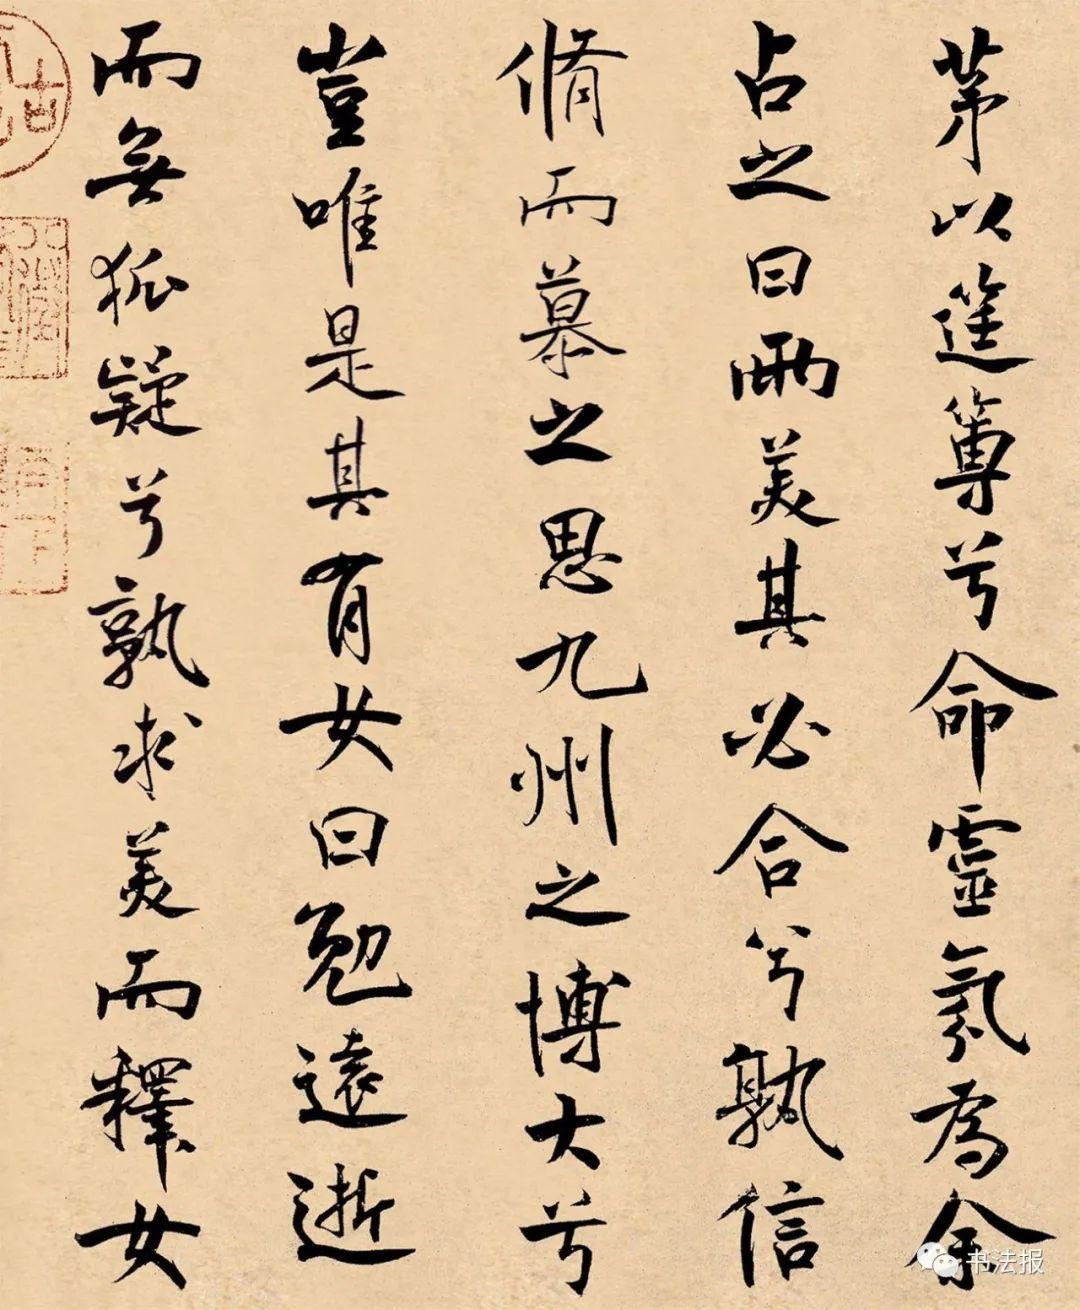 茅以筳篿兮命靈氛為余
占之曰兩美其必合兮孰信
脩而慕之思九州之博大兮
豈唯是其有女曰勉遠逝
而無狐疑兮孰求美而釋女
书法报